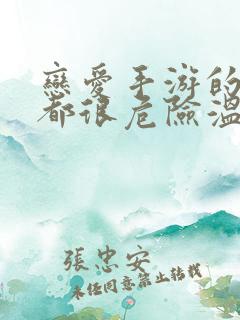 戀愛手游的
都很危險溫
張忠安
未經同意禁止轉載